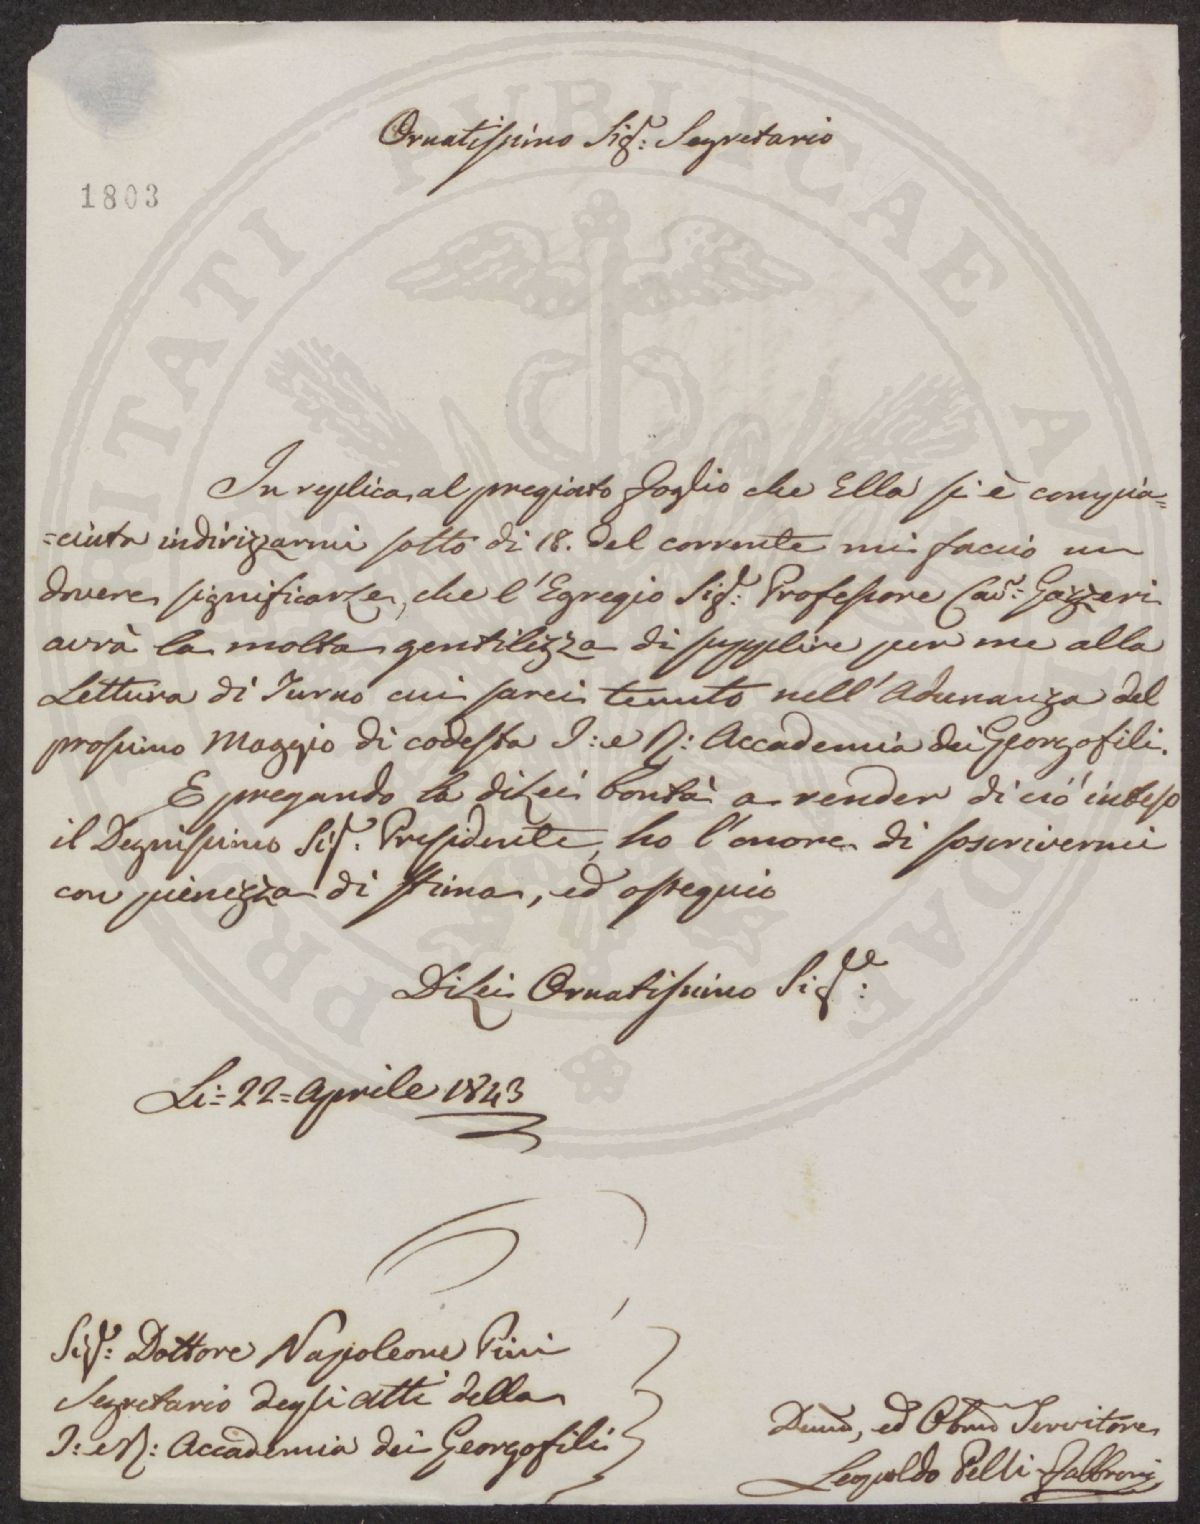 Ornatissimo Sigr: Segretario
1803
In replica al pregiato foglio che Ella si è compia=
=ciuta indirizzarmi sotto dì 18. del corrente mi faccio un
dovere significarLe, che l'Egregio Sigr: Professore Cavr: Gazzeri
avrà la molta gentilizza di supplire per me alla
Lettura di Turno cui sarei tenuto nell'Adunanza del
prossimo Maggio di codesta I: e R: Accademia dei Georgofili.
E pregando la di Lei bontà a render di ciò inteso
il Degnissimo Sigr: Presidente, ho l'onore di soscrivermi
con pienezza di stima, ed ossequio
Di Lei Ornatissimo Sigre:
Li= 22= Aprile 1843
Sigr: Dottore Napoleone Pini
Segretario degli atti della
I: e R: Accademia dei Georgofili
Devmo, ed Obmo Servitore
Leopoldo Pelli Fabbroni
PROSPERITATI PUBLICAE AUGENDAE